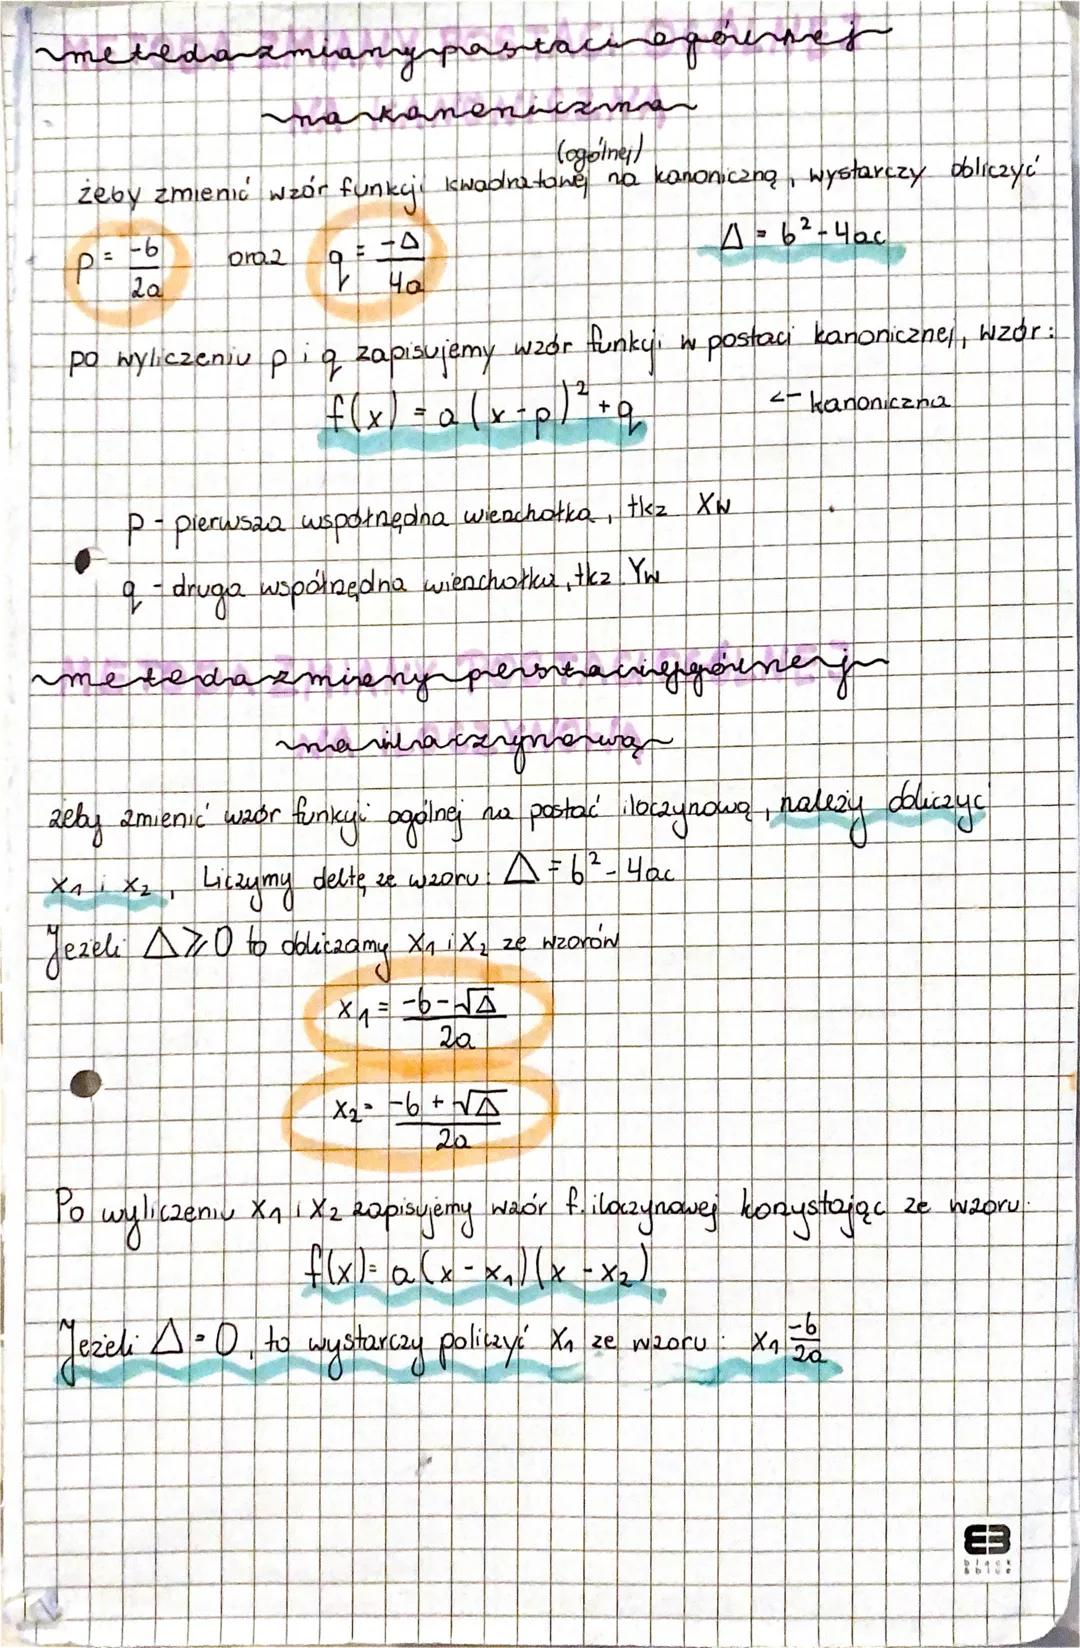 metoda zmiany postaci ogólnej
na kanoniczną
(ogólnej)
żeby zmienić wzór funkcji kwadratowej na kanoniczną, wystarczyć obliczyć
p = -b/2a oraz q = -Δ/4a Δ = b² - 4ac
po wyliczeniu p i q zapisujemy wzór funkcji w postaci kanonicznej, wzór:
f(x) = a(x-p)² + q <- kanoniczna
p - pierwsza współrzędna wierzchołka, tkz Xw
q - druga współrzędna wierzchołka, tkz Yw
metoda zmiany postaci ogólnej
na iloczynową
żeby zmienić wzór funkcji ogólnej na postać iloczynową, należy obliczyć
x₁ i x₂, Liczymy deltę ze wzoru: Δ = b² - 4ac
Jeżeli Δ ⩾ 0 to obliczamy x₁ i x₂ ze wzorów
x₁ = -b-√Δ/2a
x₂ = -b+√Δ/2a
Po wyliczeniu x₁ i x₂ zapisujemy wzór f. iloczynowej korzystając ze wzoru:
f(x) = a(x - x₁)(x - x₂)
Jeżeli Δ = 0, to wystarczy policzyć x₁ ze wzoru: x₁ = -b/2a
black
&blue